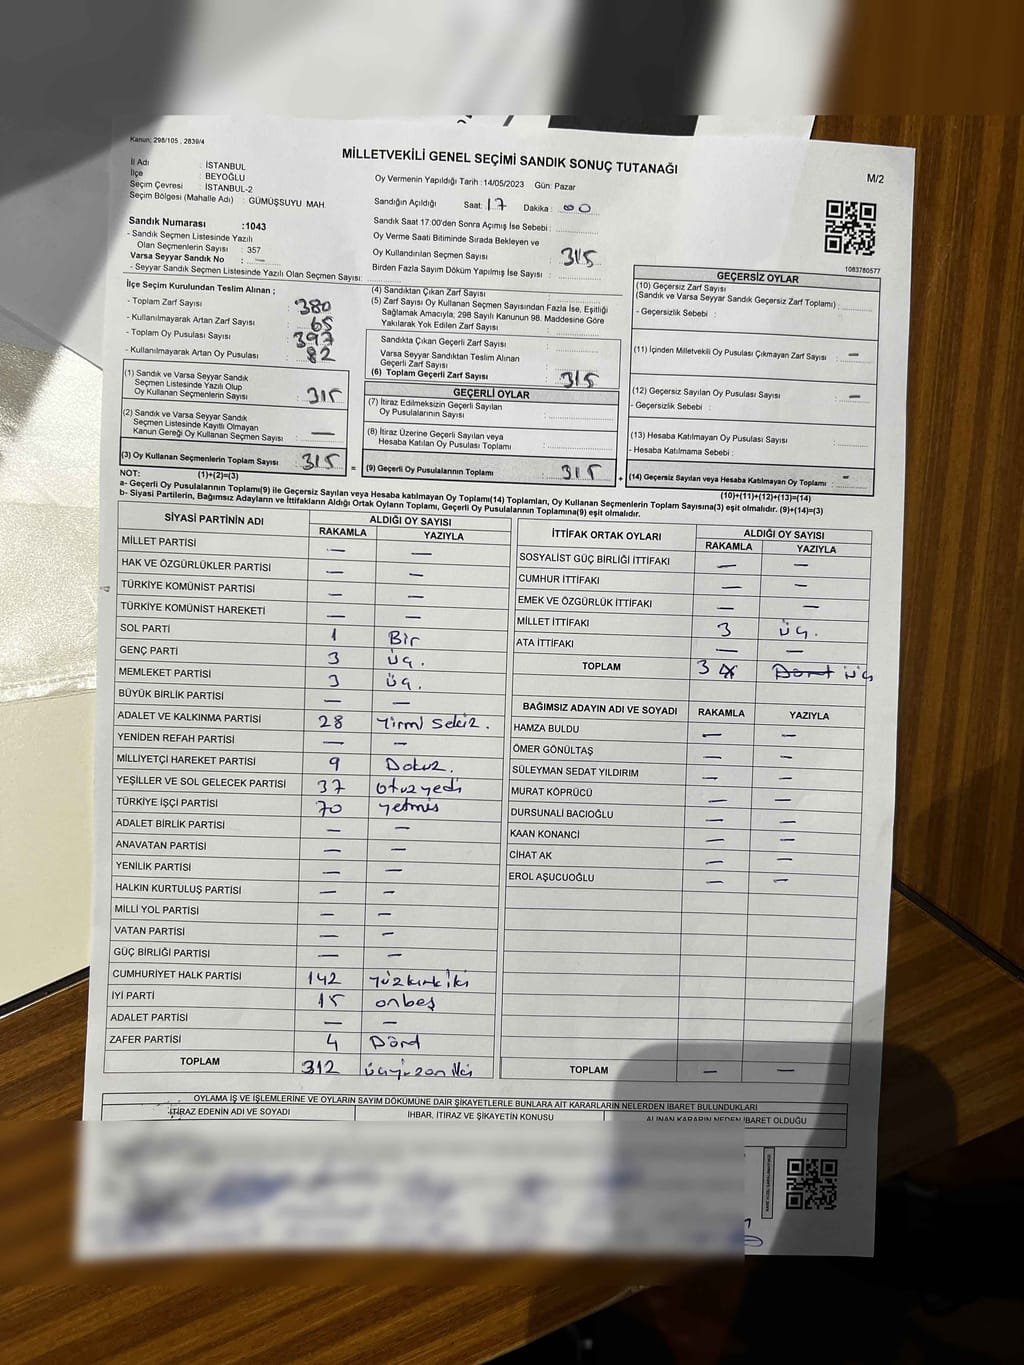 Kanun; 298/105 , 2839/4
MİLLETVEKİLİ GENEL SEÇİMİ SANDIK SONUÇ TUTANAĞI
M/2
İl Adı : İSTANBUL
İlçe : BEYOĞLU
Seçim Çevresi : İSTANBUL-2
Seçim Bölgesi (Mahalle Adı) : GÜMÜŞSUYU MAH.
Oy Vermenin Yapıldığı Tarih :14/05/2023 Gün: Pazar
Sandığın Açıldığı Saat: 17 Dakika : 00
Sandık Saat 17:00'den Sonra Açımış İse Sebebi :
Oy Verme Saati Bitiminde Sırada Bekleyen ve
Oy Kullandırılan Seçmen Sayısı : 315
Birden Fazla Sayım Döküm Yapılmış İse Sayısı :
Sandık Numarası :1043
- Sandık Seçmen Listesinde Yazılı
Olan Seçmenlerin Sayısı : 357
Varsa Seyyar Sandık No : —
- Seyyar Sandık Seçmen Listesinde Yazılı Olan Seçmen Sayısı:
1083780577
İlçe Seçim Kurulundan Teslim Alınan ;
- Toplam Zarf Sayısı : 380
- Kullanılmayarak Artan Zarf Sayısı : 65
- Toplam Oy Pusulası Sayısı : 397
- Kullanılmayarak Artan Oy Pusulası : 82
(1) Sandık ve Varsa Seyyar Sandık
Seçmen Listesinde Yazılı Olup
Oy Kullanan Seçmenlerin Sayısı : 315
(2) Sandık ve Varsa Seyyar Sandık
Seçmen Listesinde Kayıtlı Olmayan
Kanun Gereği Oy Kullanan Seçmen Sayısı : —
(3) Oy Kullanan Seçmenlerin Toplam Sayısı : 315
(1)+(2)=(3)
(4) Sandıktan Çıkan Zarf Sayısı :
(5) Zarf Sayısı Oy Kullanan Seçmen Sayısından Fazla İse, Eşitliği
Sağlamak Amacıyla; 298 Sayılı Kanunun 98. Maddesine Göre
Yakılarak Yok Edilen Zarf Sayısı :
Sandıkta Çıkan Geçerli Zarf Sayısı :
Varsa Seyyar Sandıktan Teslim Alınan
Geçerli Zarf Sayısı :
(6) Toplam Geçerli Zarf Sayısı : 315
GEÇERLİ OYLAR
(7) İtiraz Edilmeksizin Geçerli Sayılan
Oy Pusulalarının Sayısı :
(8) İtiraz Üzerine Geçerli Sayılan veya
Hesaba Katılan Oy Pusulası Toplamı :
= (9) Geçerli Oy Pusulalarının Toplamı : 315 +
GEÇERSİZ OYLAR
(10) Geçersiz Zarf Sayısı
(Sandık ve Varsa Seyyar Sandık Geçersiz Zarf Toplamı) :
- Geçersizlik Sebebi :
(11) İçinden Milletvekili Oy Pusulası Çıkmayan Zarf Sayısı : —
(12) Geçersiz Sayılan Oy Pusulası Sayısı : —
- Geçersizlik Sebebi :
(13) Hesaba Katılmayan Oy Pusulası Sayısı :
- Hesaba Katılmama Sebebi :
(14) Geçersiz Sayılan veya Hesaba Katılmayan Oy Toplamı : -
(10)+(11)+(12)+(13)=(14)
NOT:
a- Geçerli Oy Pusulalarının Toplamı(9) ile Geçersiz Sayılan veya Hesaba katılmayan Oy Toplamı(14) Toplamları, Oy Kullanan Seçmenlerin Toplam Sayısına(3) eşit olmalıdır. (9)+(14)=(3)
b- Siyasi Partilerin, Bağımsız Adayların ve İttifakların Aldığı Ortak Oyların Toplamı, Geçerli Oy Pusulalarının Toplamına(9) eşit olmalıdır.
SİYASİ PARTİNİN ADI ALDIĞI OY SAYISI
RAKAMLA YAZIYLA
MİLLET PARTİSI — —
HAK VE ÖZGÜRLÜKLER PARTİSİ — —
TÜRKİYE KOMÜNİST PARTİSİ — —
TÜRKİYE KOMÜNİST HAREKETİ — —
SOL PARTİ 1 Bir
GENÇ PARTİ 3 üç.
MEMLEKET PARTİSİ 3 üç.
BÜYÜK BİRLİK PARTİSİ — —
ADALET VE KALKINMA PARTİSİ 28 Yirmi sekiz.
YENİDEN REFAH PARTİSİ — —
MİLLİYETÇİ HAREKET PARTİSİ 9 Dokuz.
YEŞİLLER VE SOL GELECEK PARTİSİ 37 otuzyedi
TÜRKİYE İŞÇİ PARTİSİ 70 yetmiş
ADALET BİRLİK PARTİSİ — —
ANAVATAN PARTİSİ — —
YENİLİK PARTİSİ — —
HALKIN KURTULUŞ PARTİSİ — —
MİLLİ YOL PARTİSİ — —
VATAN PARTİSİ — —
GÜÇ BİRLİĞİ PARTİSİ — —
CUMHURİYET HALK PARTİSİ 142 Yüzkırkiki
İYİ PARTİ 15 onbeş
ADALET PARTİSİ — —
ZAFER PARTİSİ 4 Dörd
TOPLAM 312 üçyüzoniki
İTTİFAK ORTAK OYLARI ALDIĞI OY SAYISI
RAKAMLA YAZIYLA
SOSYALİST GÜÇ BİRLİĞİ İTTİFAKI — —
CUMHUR İTTİFAKI — —
EMEK VE ÖZGÜRLÜK İTTİFAKI — —
MİLLET İTTİFAKI 3 üç.
ATA İTTİFAKI — —
TOPLAM 3 4 Dört üç
BAĞIMSIZ ADAYIN ADI VE SOYADI RAKAMLA YAZIYLA
HAMZA BULDU — —
ÖMER GÖNÜLTAŞ — —
SÜLEYMAN SEDAT YILDIRIM — —
MURAT KÖPRÜCÜ — —
DURSUNALİ BACIOĞLU — —
KAAN KONANCİ — —
CİHAT AK — —
EROL AŞUCUOĞLU — —
TOPLAM — —
OYLAMA İŞ VE İŞLEMLERİNE VE OYLARIN SAYIM DÖKÜMÜNE DAİR ŞİKAYETLERLE BUNLARA AİT KARARLARIN NELERDEN İBARET BULUNDUKLARI
İTİRAZ EDENİN ADI VE SOYADI İHBAR, İTİRAZ VE ŞİKAYETİN KONUSU ALINAN KARARIN NEDEN İBARET OLDUĞU